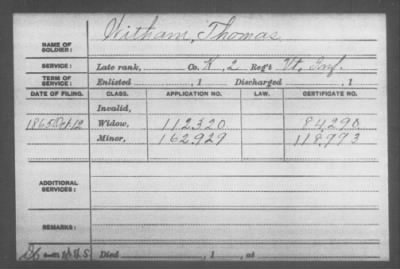 NAME OF SOLDIER: Witham, Thomas
SERVICE: Late rank, Co. K, 2 Reg't Vt. Inf.
TERM OF SERVICE: Enlisted , 1 Discharged , 1
DATE OF FILING. CLASS. APPLICATION NO. LAW. CERTIFICATE NO.
Invalid,
1865 Oct 12 Widow, 112320 84290
Minor, 162929 118993
ADDITIONAL SERVICES:
REMARKS:
Died , 1 , at